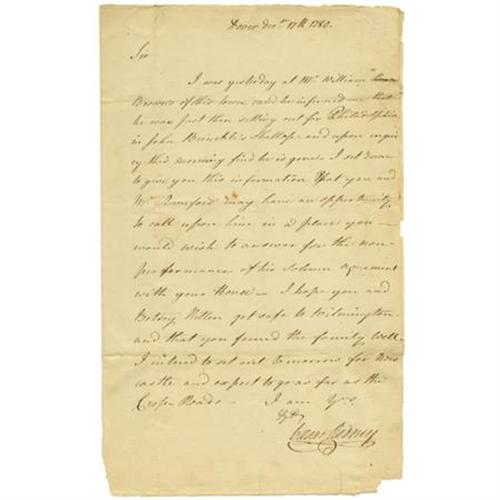 Dover Decr. 17th 1780.
Sir
I was yesterday at Mr. William
Browns of this town and he informed me that
he was Just then setting out for Philadelphia
in John Brinckle's Shallop and upon enqui
ry this morning find he is gone. I set down
to give you this information that you and
Mr. Rumford may have an opportunity
to call upon him in a place you
would wish to answer for the non
performance of his Solemn agreement
with your House — I hope you and
Betsey Killen got safe to Wilmington
and that you found the family well.
I intend to set out tomorrow for New
castle and expect to go as far as the
Cross Roads — I am Yrs.
Caesar Rodney